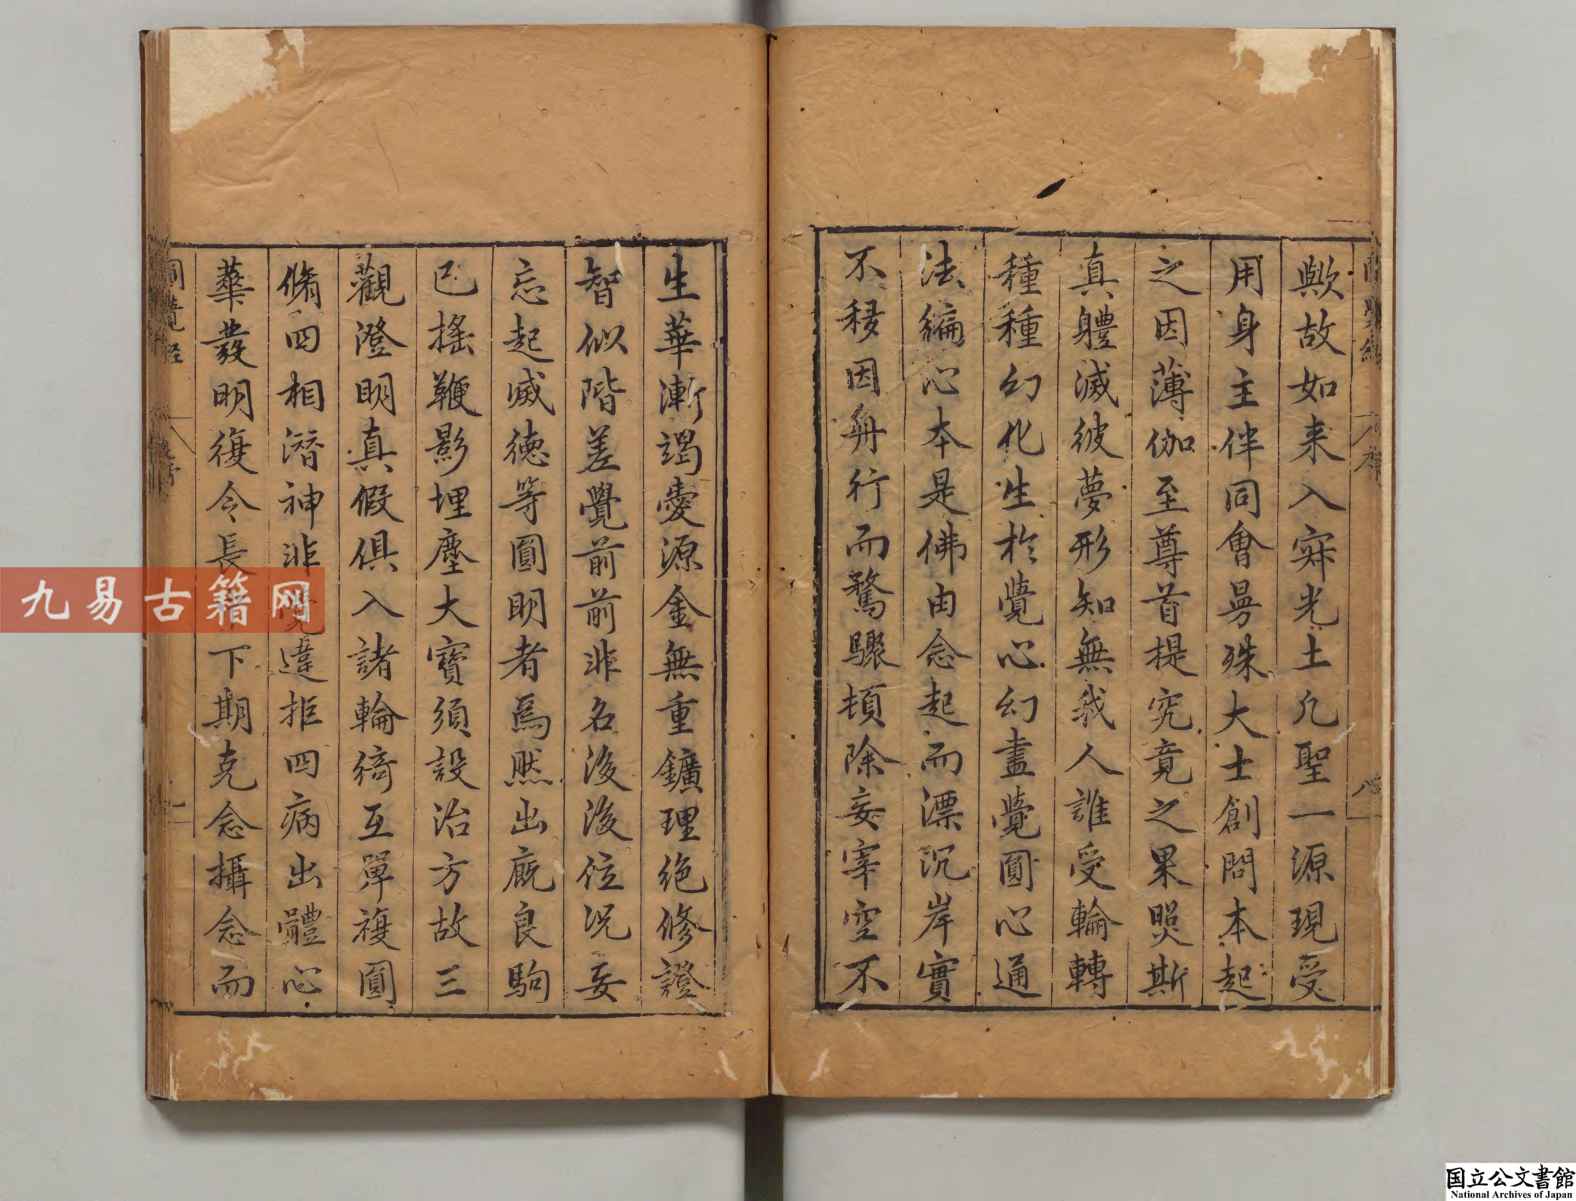 歟故如来入寂光土凡聖一源現受
用身主伴同會曼殊大士創問本起
之因薄伽至尊首提究竟之果照斯
真體滅彼夢形知無我人誰受輪轉
種種幻化生於覺心幻盡覺圓心通
法徧心本是佛由念起而漂沉岸實
不移因舟行而騖驟頓除妄宰空不
生華漸竭愛源金無重鑛理絶修證
智似階差覺前前非名後後位況妄
忘起滅德等圓明者焉然出厩良駒
已搖鞭影埋塵大寶須設治方故三
觀澄明真假俱入諸輪綺互單複圓
脩四相潜神非覺違拒四病出體心
華發明復令長下期克念攝念而
九易古籍网
国立公文書館
National Archives of Japan